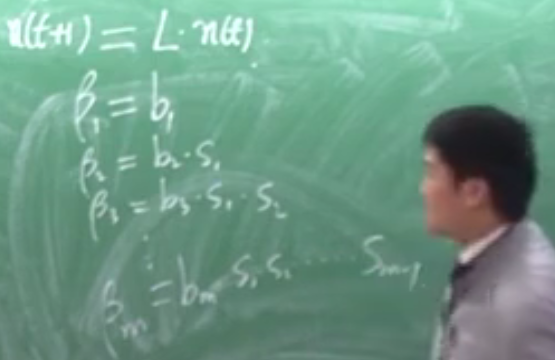 n(t+1) = L·n(t).
β₁ = b₁
β₂ = b₂·S₁
β₃ = b₃·S₁·S₂
⋮
βₘ = bₘ·S₁·S₂·····Sₘ₋₁.